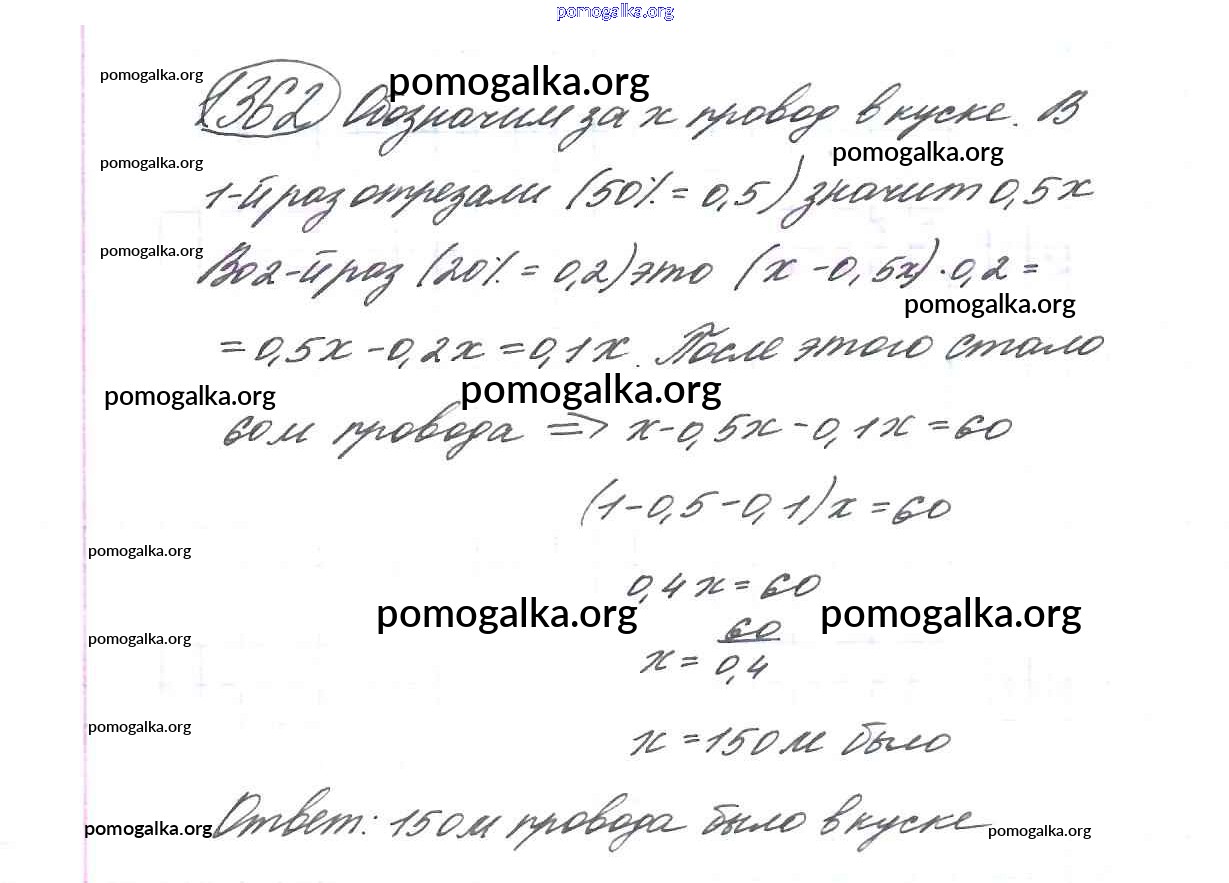 pomogalka.org
pomogalka.org pomogalka.org
1362 Обозначим за x провод в куске. В
pomogalka.org pomogalka.org
1-й раз отрезали (50% = 0,5) значит 0,5x
pomogalka.org
Во 2-й раз (20% = 0,2) это (x - 0,5x) · 0,2 =
pomogalka.org
= 0,5x - 0,2x = 0,1x. После этого стало
pomogalka.org pomogalka.org
60 м провода => x - 0,5x - 0,1x = 60
(1 - 0,5 - 0,1)x = 60
pomogalka.org
0,4x = 60
pomogalka.org pomogalka.org
pomogalka.org
x = 60/0,4
pomogalka.org
x = 150 м было
pomogalka.org Ответ: 150 м провода было в куске pomogalka.org